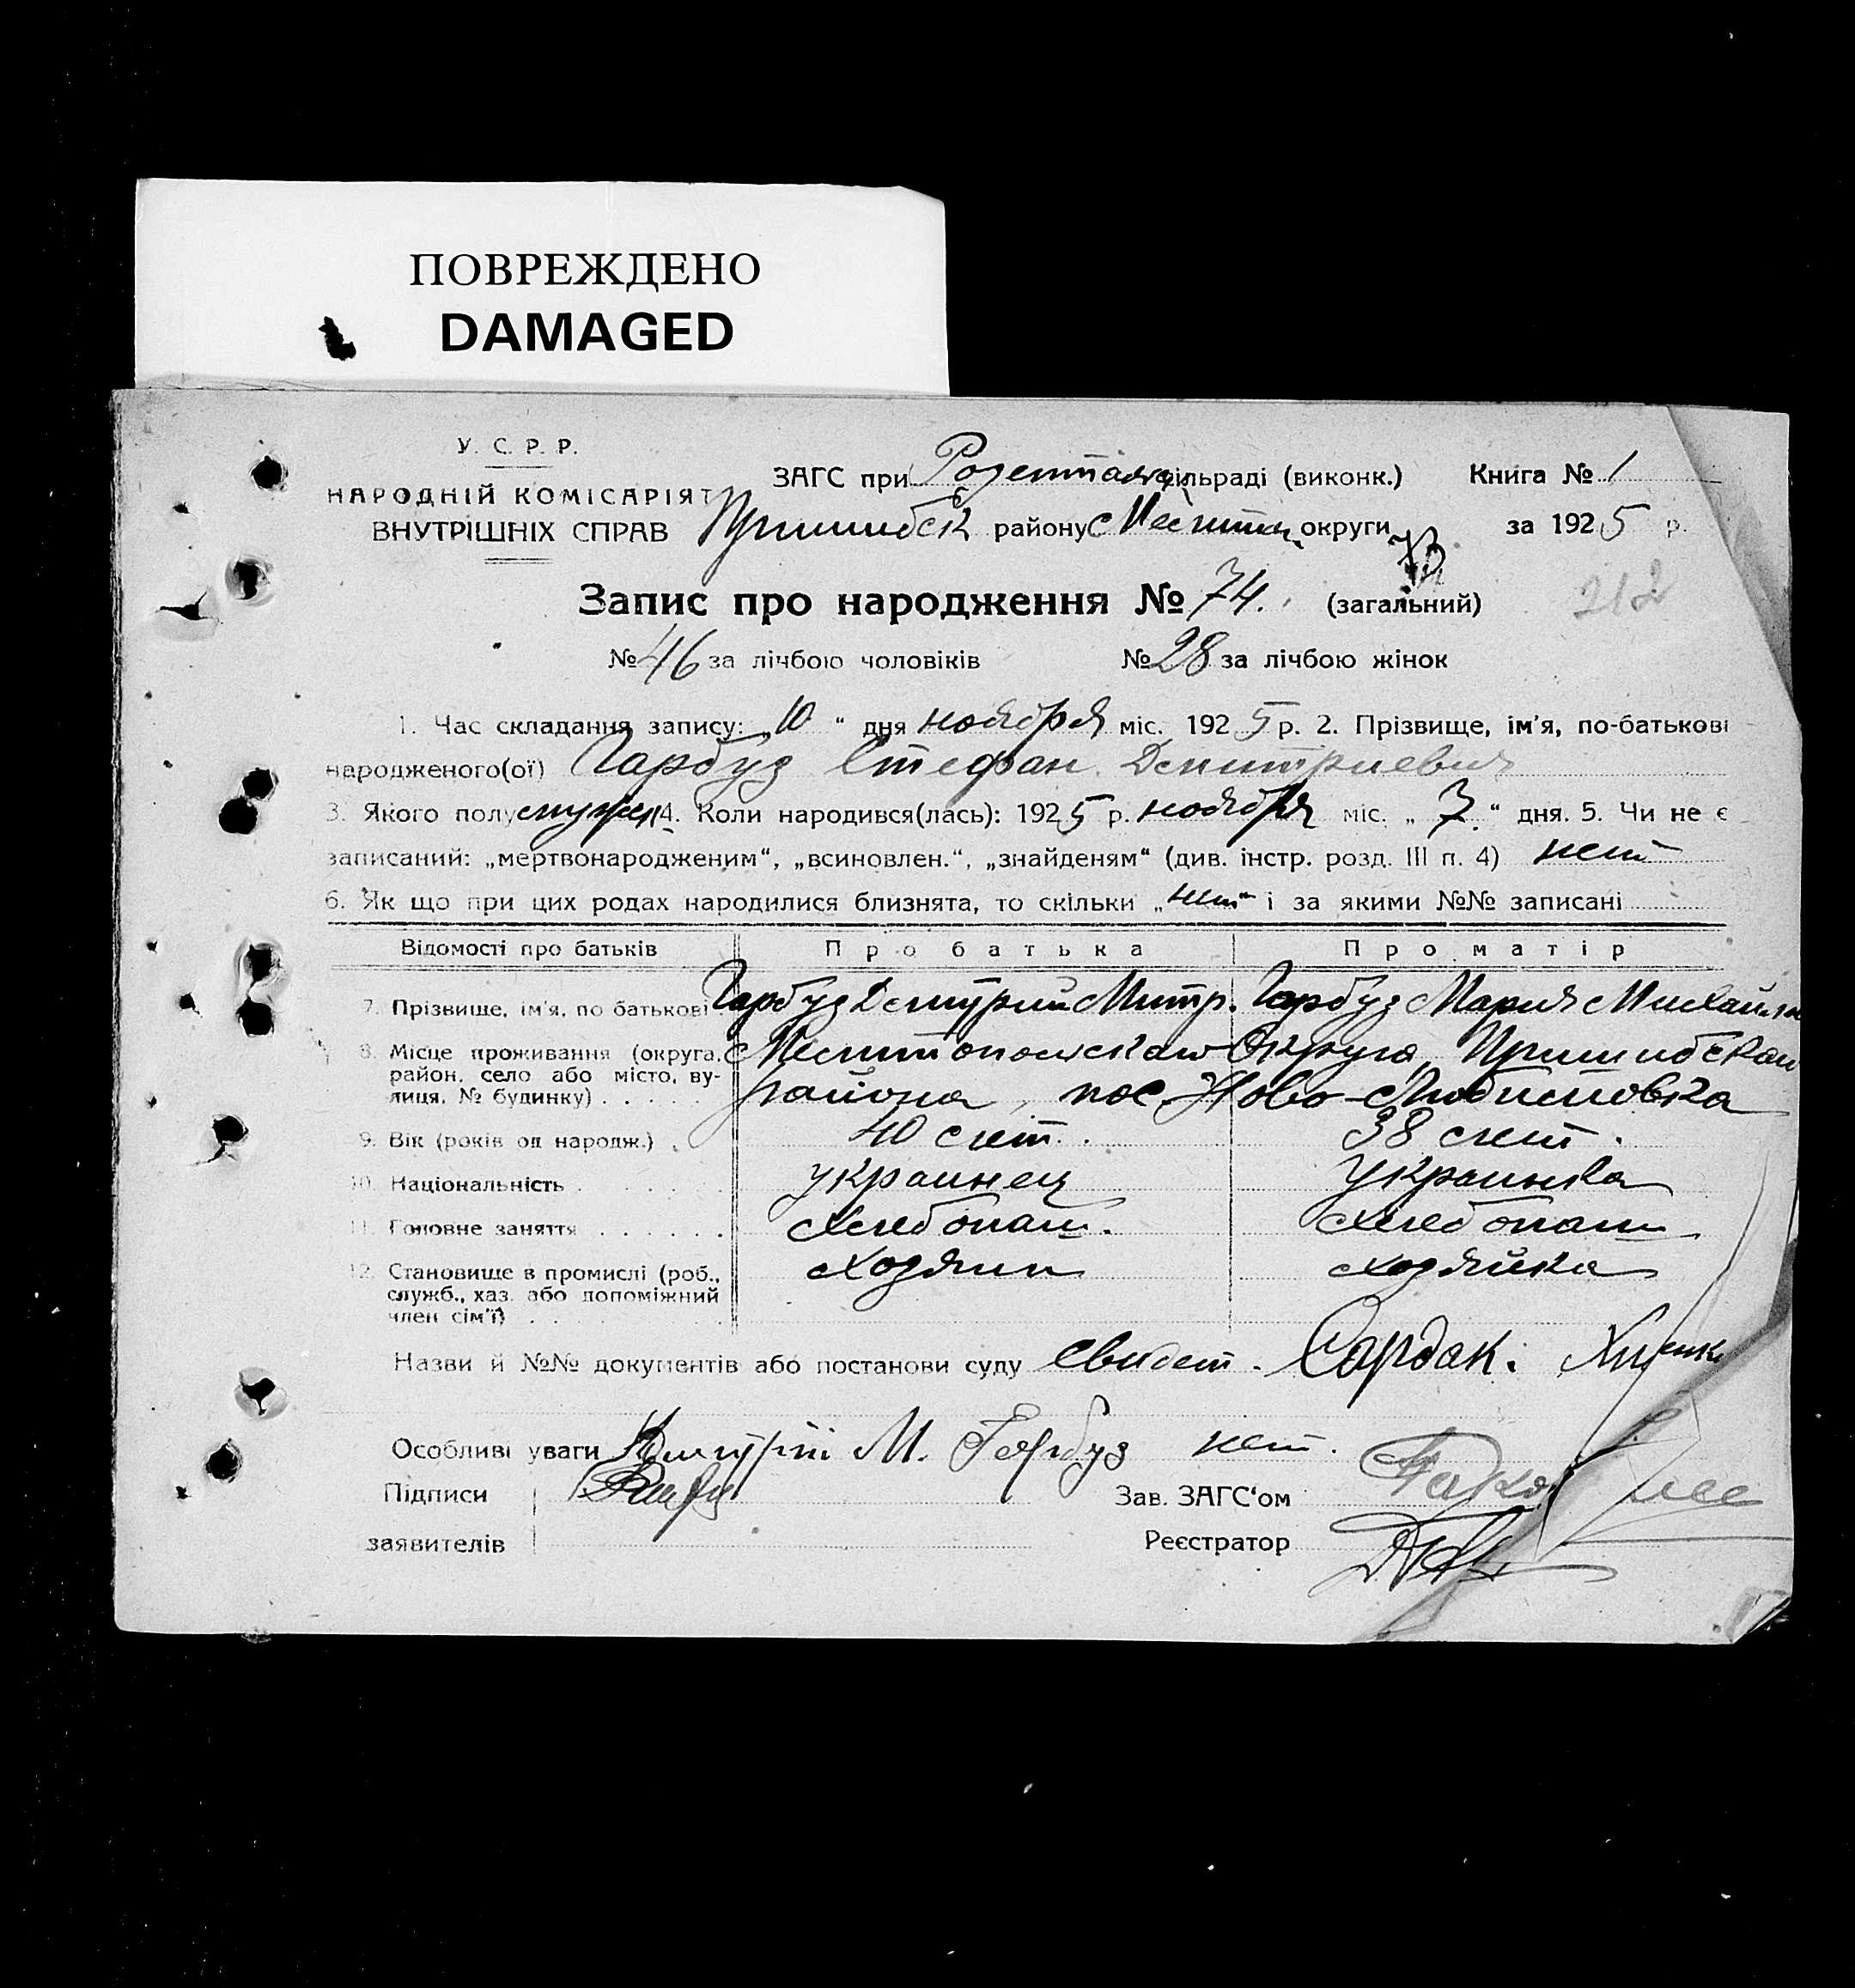 ПОВРЕЖДЕНО
DAMAGED
У. С. Р. Р.
НАРОДНІЙ КОМІСАРІЯТ
ВНУТРІШНІХ СПРАВ
ЗАГС при сільраді (виконк.) Книга № 1
Пришибск району Мелитоп. округи за 1925 р.
Запис про народження № 74. (загальний) 212
№ 46 за лічбою чоловіків № 28 за лічбою жінок
1. Час складання запису: „10“ дня ноября міс. 1925 р. 2. Прізвище, ім'я, по-батькові
народженого(ої) Гарбуз Стефан Дмитриевич
3. Якого полу мужск 4. Коли народився(лась): 1925 р. ноября міс. „7“ дня. 5. Чи не є
записаний: „мертвонародженим“, „всиновлен.“, „знайденям“ (див. інстр. розд. III п. 4) нет
6. Як що при цих родах народилися близнята, то скільки „нет“ і за якими №№ записані
Відомості про батьків Про батька Про матір
7. Прізвище, ім'я, по батькові Гарбуз Дмитрий Митр. Гарбуз Мария Михайл
8. Місце проживання (округа, Мелитопольская Округа, Пришибскаи
район, село або місто, ву-
лиця, № будинку) района, пос. Ново-Любимовка
9. Вік (років од народж.) 40 лет. 38 лет.
10. Національність украинец украинка
11. Головне заняття хлебопаш. хлебопаш
12. Становище в промислі (роб., хозяин хозяйка
служб., хаз. або допоміжний
член сім'ї)
Назви й №№ документів або постанови суду свидет. Сардак.
Особливі уваги Дмитрій М. Гарбуз нет.
Підписи Зав. ЗАГС‘ом
заявителів Реєстратор